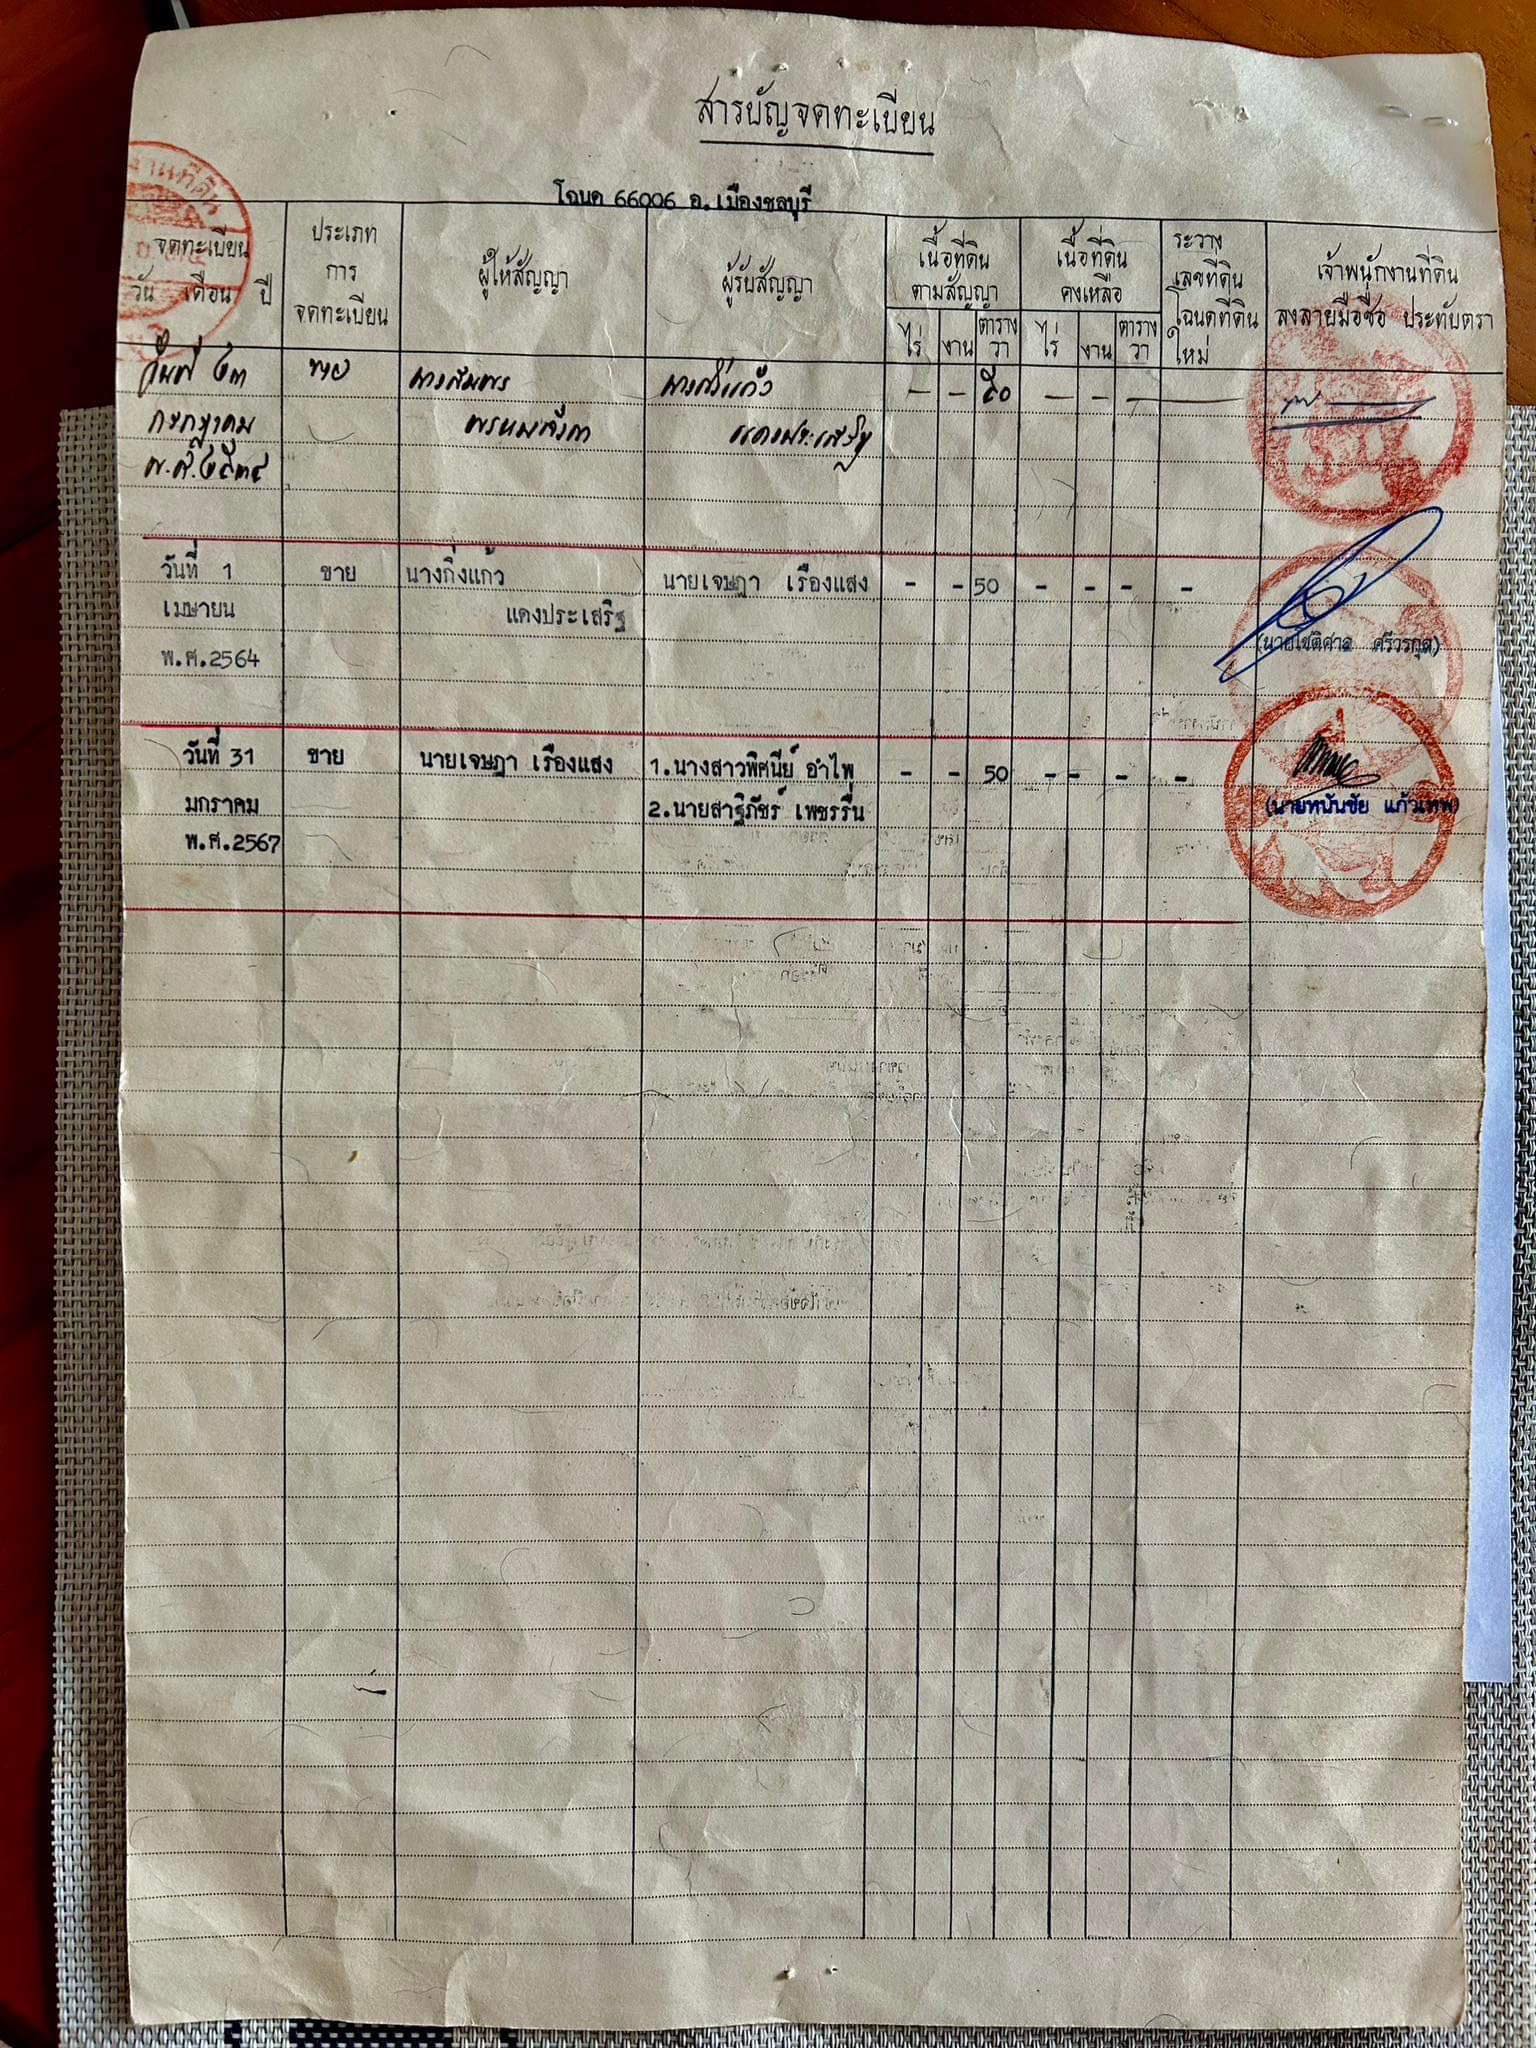 สารบัญจดทะเบียน
โฉนด 66006 อ.เมืองชลบุรี
จดทะเบียน
วัน เดือน ปี
ประเภท
การ
จดทะเบียน
ผู้ให้สัญญา
ผู้รับสัญญา
เนื้อที่ดิน
ตามสัญญา
ไร่ งาน ตาราง
วา
เนื้อที่ดิน
คงเหลือ
ไร่ งาน ตาราง
วา
ระวาง
เลขที่ดิน
โฉนดที่ดิน
ใหม่
เจ้าพนักงานที่ดิน
ลงลายมือชื่อ ประทับตรา
วันที่ ๒๓ ขาย - - ๕๐ - - -
กรกฎาคม แดงประเสริฐ
พ.ศ. ๒๕๓๔
วันที่ 1 ขาย นางกิ่งแก้ว นายเจษฎา เรืองแสง - - 50 - - - -
เมษายน แดงประเสริฐ
พ.ศ.2564 (นายโชติศาล ศรีวรกุล)
วันที่ 31 ขาย นายเจษฎา เรืองแสง 1.นางสาวพิศนีย์ อำไพ - - 50 - - - -
มกราคม 2.นายสาฐิภัชร์ เพชรรื่น (นายทนันชัย แก้วเทพ)
พ.ศ.2567